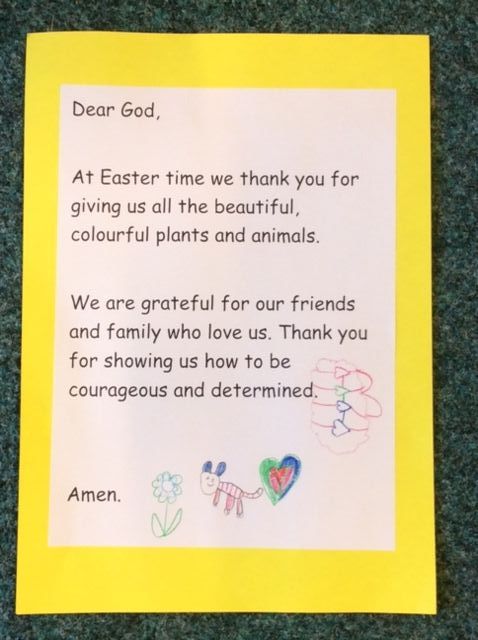 Dear God,
At Easter time we thank you for
giving us all the beautiful,
colourful plants and animals.
We are grateful for our friends
and family who love us. Thank you
for showing us how to be
courageous and determined.
Amen.